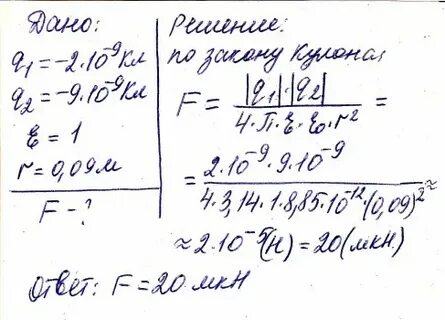 Дано:
q₁ = -2·10⁻⁹ Кл
q₂ = -9·10⁻⁹ Кл
ε = 1
r = 0,09 м
F - ?
Решение:
по закону Кулона:
F = |q₁|·|q₂| / 4·π·ε·ε₀·r² =
= 2·10⁻⁹·9·10⁻⁹ / 4·3,14·1·8,85·10⁻¹²·(0,09)² ≈
≈ 2·10⁻⁵(Н) = 20(мкН)
Ответ: F = 20 мкН